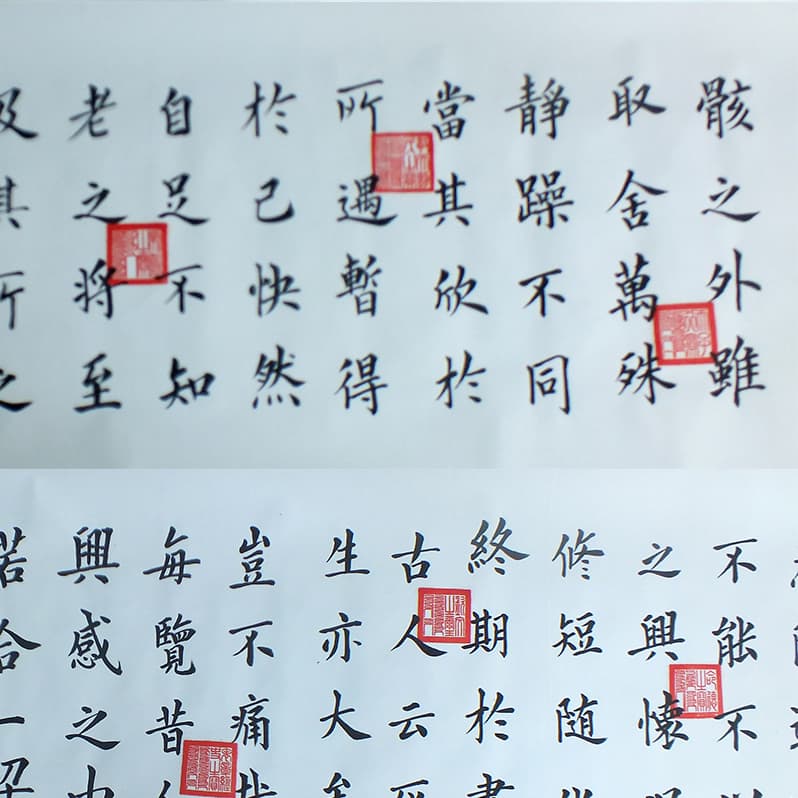 骸之外雖
取舍萬殊
靜躁不同
當其欣於
所遇暫得
於己快然
自足不知
老之将至
及其所之
不能不
之興懷
修短随
終期於
古人云
生亦大矣
豈不痛哉
每覽昔人
興感之由
若合一契